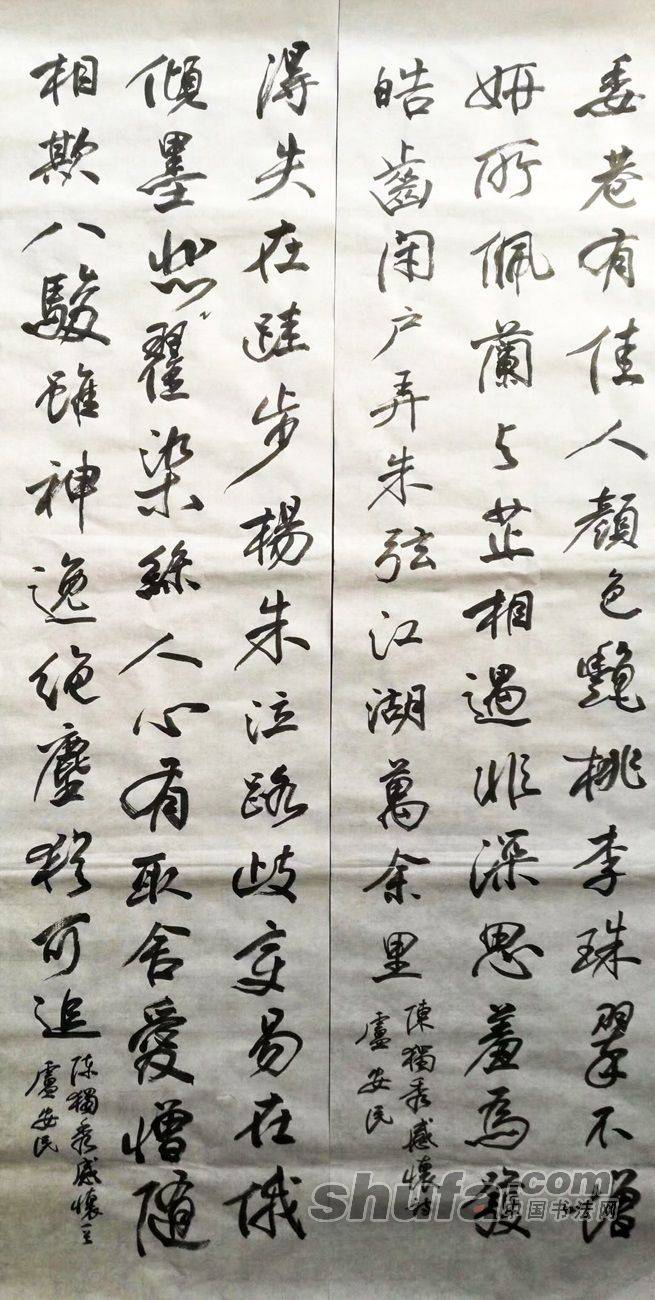 委巷有佳人顏色艷桃李珠翠不增
妍所佩蘭与芷相遇非深恩羞為發
皓齒闭户弄朱弦江湖萬余里
陳獨秀感懷詩
盧安民
得失在跬步楊朱泣路歧变易在俄
傾墨悲翟染絲人心有取舍愛憎隨
相欺八駿雖神逸绝塵猶可追
陈獨秀感懷
盧安民
shufa.com
中国书法网